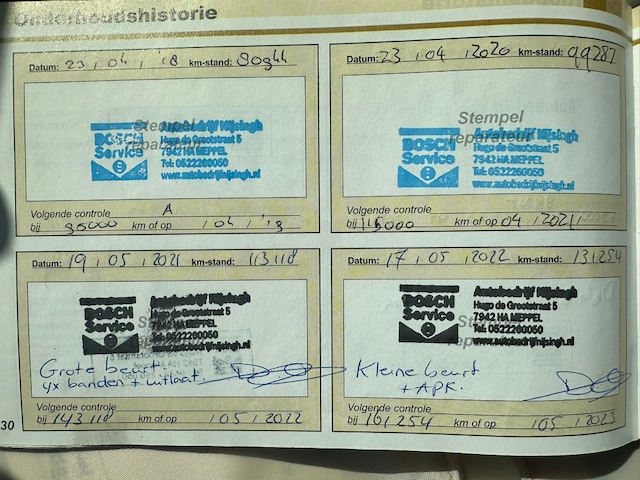 Onderhoudshistorie
Datum: 23 / 04 / '18 km-stand: 80944
Stempel
reparateur
BOSCH
Service
Autobedrijf Nijsingh
Hugo de Grootstraat 5
7942 HA MEPPEL
Tel: 0522260050
www.autobedrijfnijsingh.nl
Volgende controle A
bij 95000 km of op / 04 / '19
Datum: 23 / 04 / 2020 km-stand: 99287
Stempel
reparateur
BOSCH
Service
Autobedrijf Nijsingh
Hugo de Grootstraat 5
7942 HA MEPPEL
Tel: 0522260050
www.autobedrijfnijsingh.nl
Volgende controle
bij 115000 km of op 04 / 2021
Datum: 19 / 05 / 2021 km-stand: 113118
BOSCH
Service
Autobedrijf Nijsingh
Hugo de Grootstraat 5
7942 HA MEPPEL
Tel: 0522260050
www.autobedrijfnijsingh.nl
Grote beurt
4x banden + uitlaat.
Volgende controle
bij 143118 km of op / 05 / 2022
Datum: 17 / 05 / 2022 km-stand: 131254
BOSCH
Service
Autobedrijf Nijsingh
Hugo de Grootstraat 5
7942 HA MEPPEL
Tel: 0522260050
www.autobedrijfnijsingh.nl
Kleine beurt
+ APK.
Volgende controle
bij 161254 km of op / 05 / 2023
30